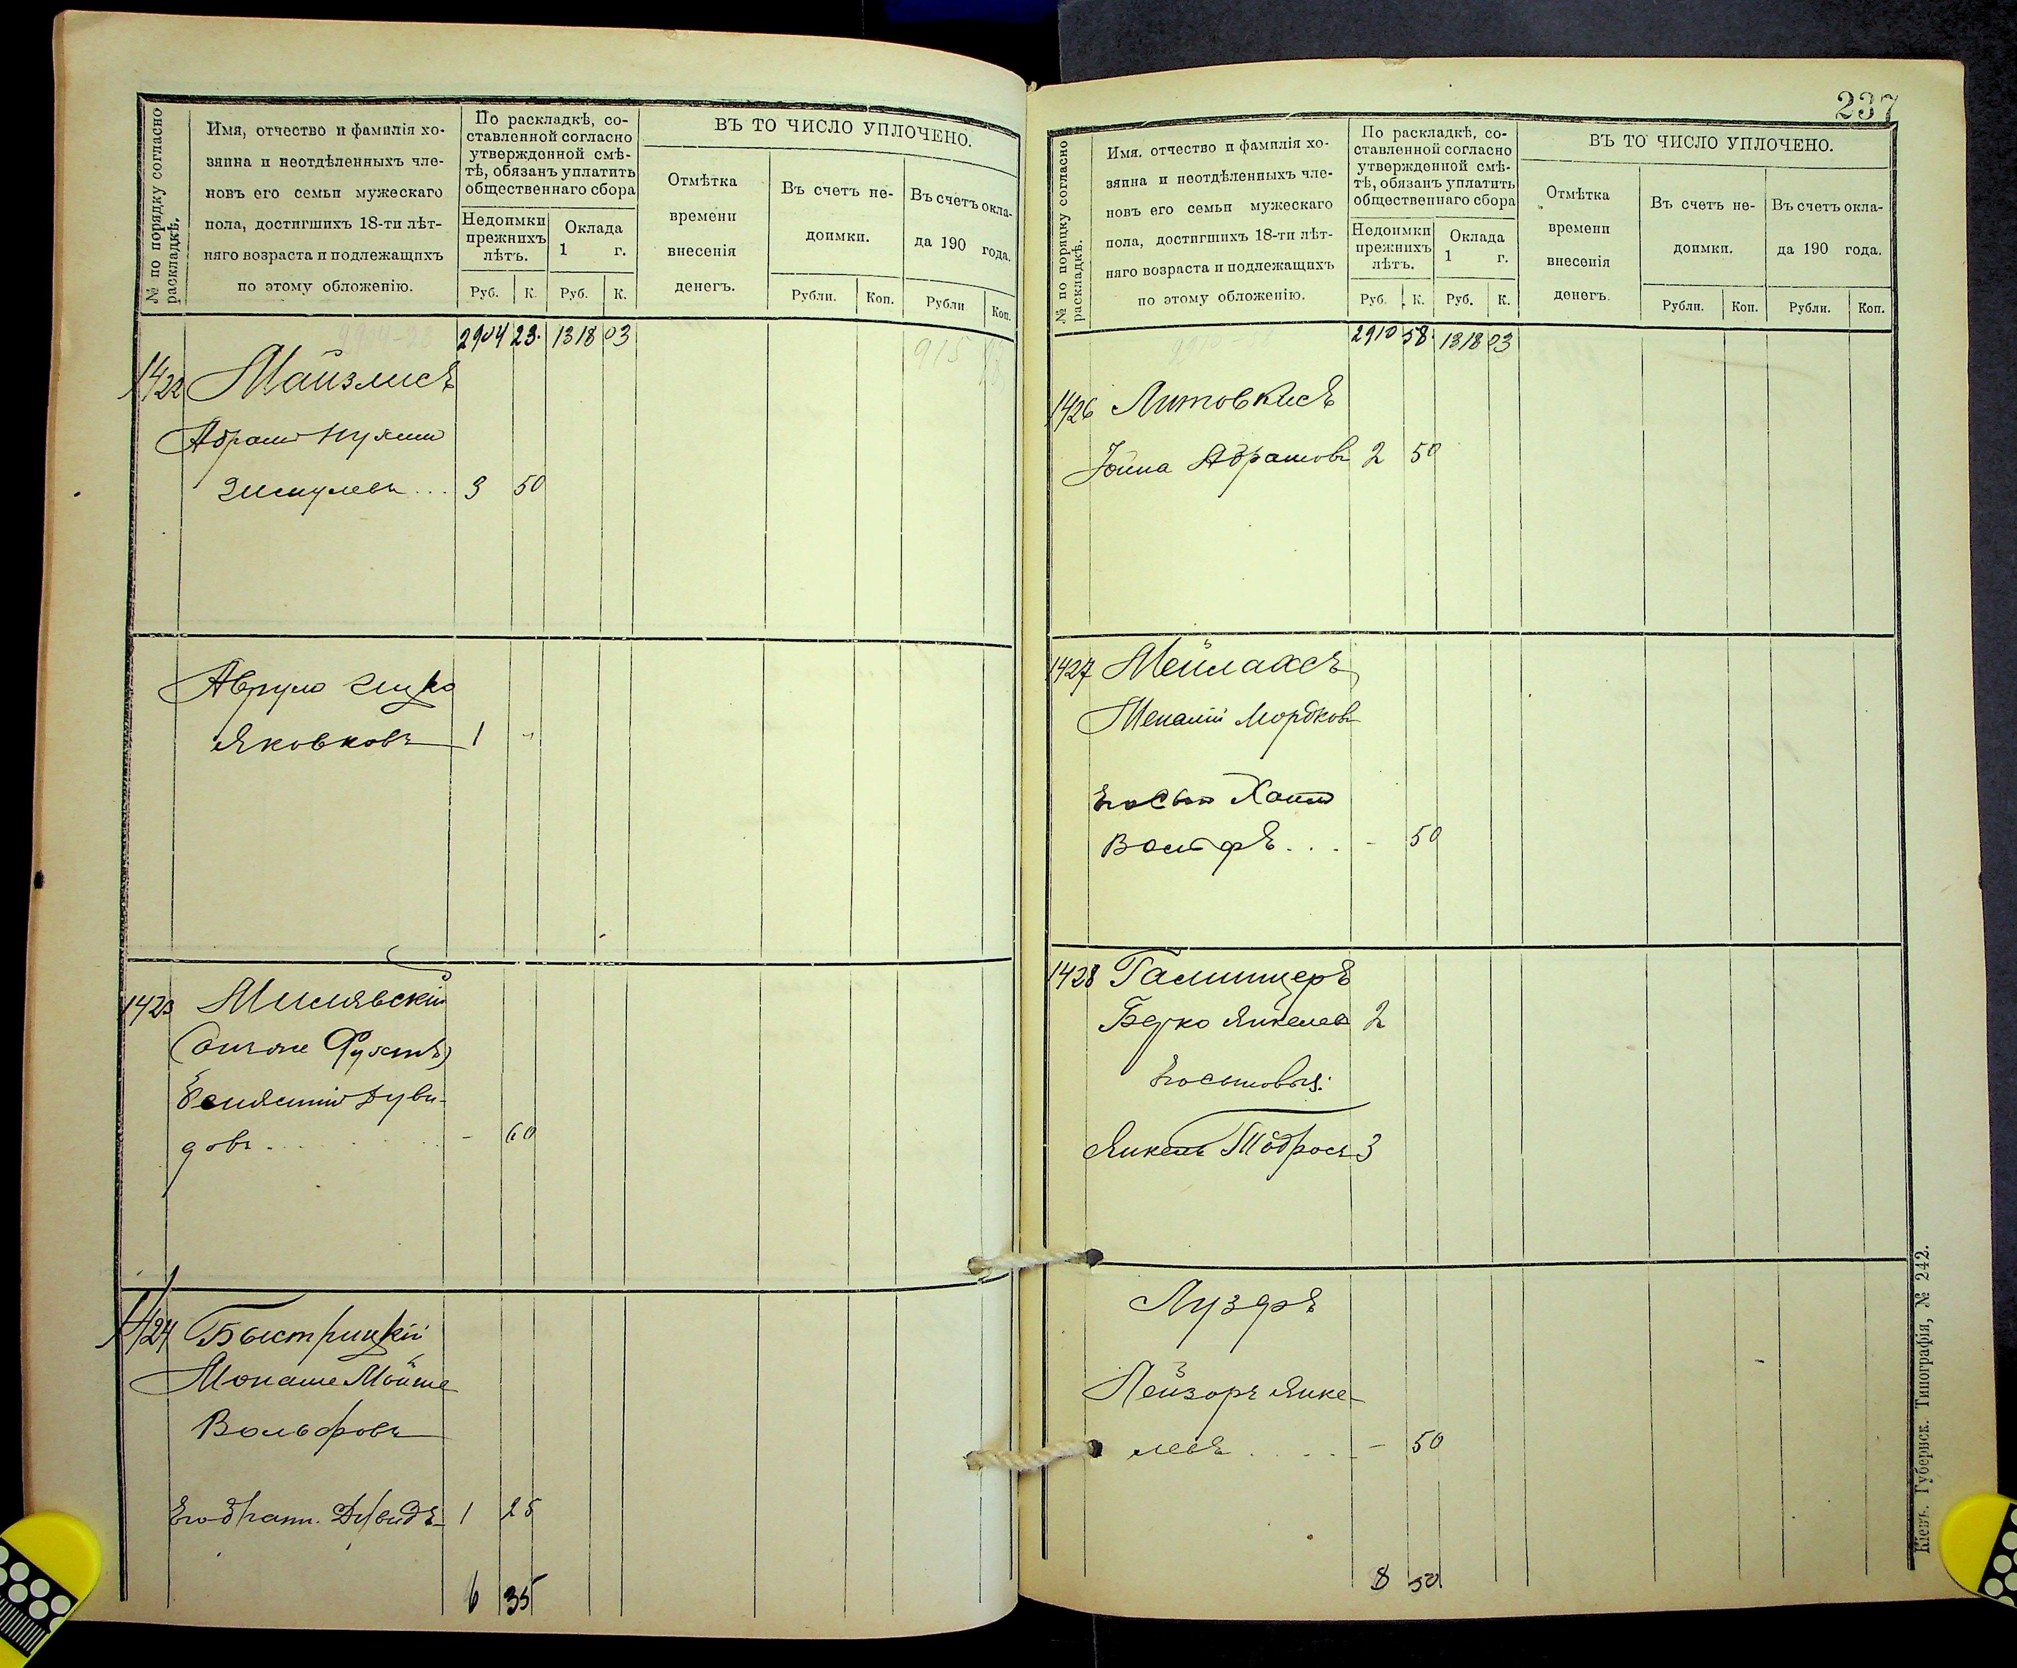 № по порядку согласно раскладкѣ.
Имя, отчество и фамилія хо-
зяина и неотдѣленныхъ чле-
новъ его семьи мужескаго
пола, достигшихъ 18-ти лѣт-
няго возраста и подлежащихъ
по этому обложенію.
По раскладкѣ, со-
ставленной согласно
утвержденной смѣ-
тѣ, обязанъ уплатить
общественнаго сбора
Недоимки
прежнихъ
лѣтъ.
Оклада
1 г.
Руб. К. Руб. К.
ВЪ ТО ЧИСЛО УПЛОЧЕНО.
Отмѣтка
времени
внесенія
денегъ.
Въ счетъ не-
доимки.
Рубли. Коп.
Въ счетъ окла-
да 190 года.
Рубли Коп.
2904 23. 1318 03
1422 Майзлисъ
Абрамъ Нухим
Шмулевъ ... 3 50
Аврум Ицко
Яковковъ 1 -
1423 Милявскій
(онъ же Фухсъ)
Беньямин Дуви-
довъ - 60
1424 Быстрицкій
Монаше Мойше
Вольфовъ
Его братъ. Дувидъ 1 25
6 35
237
№ по порядку согласно раскладкѣ.
Имя. отчество и фамилія хо-
зяина и неотдѣленныхъ чле-
новъ его семьи мужескаго
пола, достигшихъ 18-ти лѣт-
няго возраста и подлежащихъ
по этому обложенію.
По раскладкѣ, со-
ставленной согласно
утвержденной смѣ-
тѣ, обязанъ уплатить
общественнаго сбора
Недоимки
прежнихъ
лѣтъ.
Оклада
1 г.
Руб. К. Руб. К.
ВЪ ТО ЧИСЛО УПЛОЧЕНО.
Отмѣтка
времени
внесенія
денегъ.
Въ счетъ не-
доимки.
Рубли. Коп.
Въ счетъ окла-
да 190 года.
Рубли. Коп.
2910 58. 1318 03
1426 Литовкисъ
Іойна Абрамовъ 2 50
1427 Мейлахсъ
Мордковъ
Его сын Хаим
Вольфъ . . . - 50
1428 Галицеръ
Берко Янкелев 2
Его сыновья:
Янкель Тодросъ 3
Лузеръ
Лейзоръ Янке-
левъ . . . . - 50
8 50
Кіевъ. Губернск. Типографія, № 242.